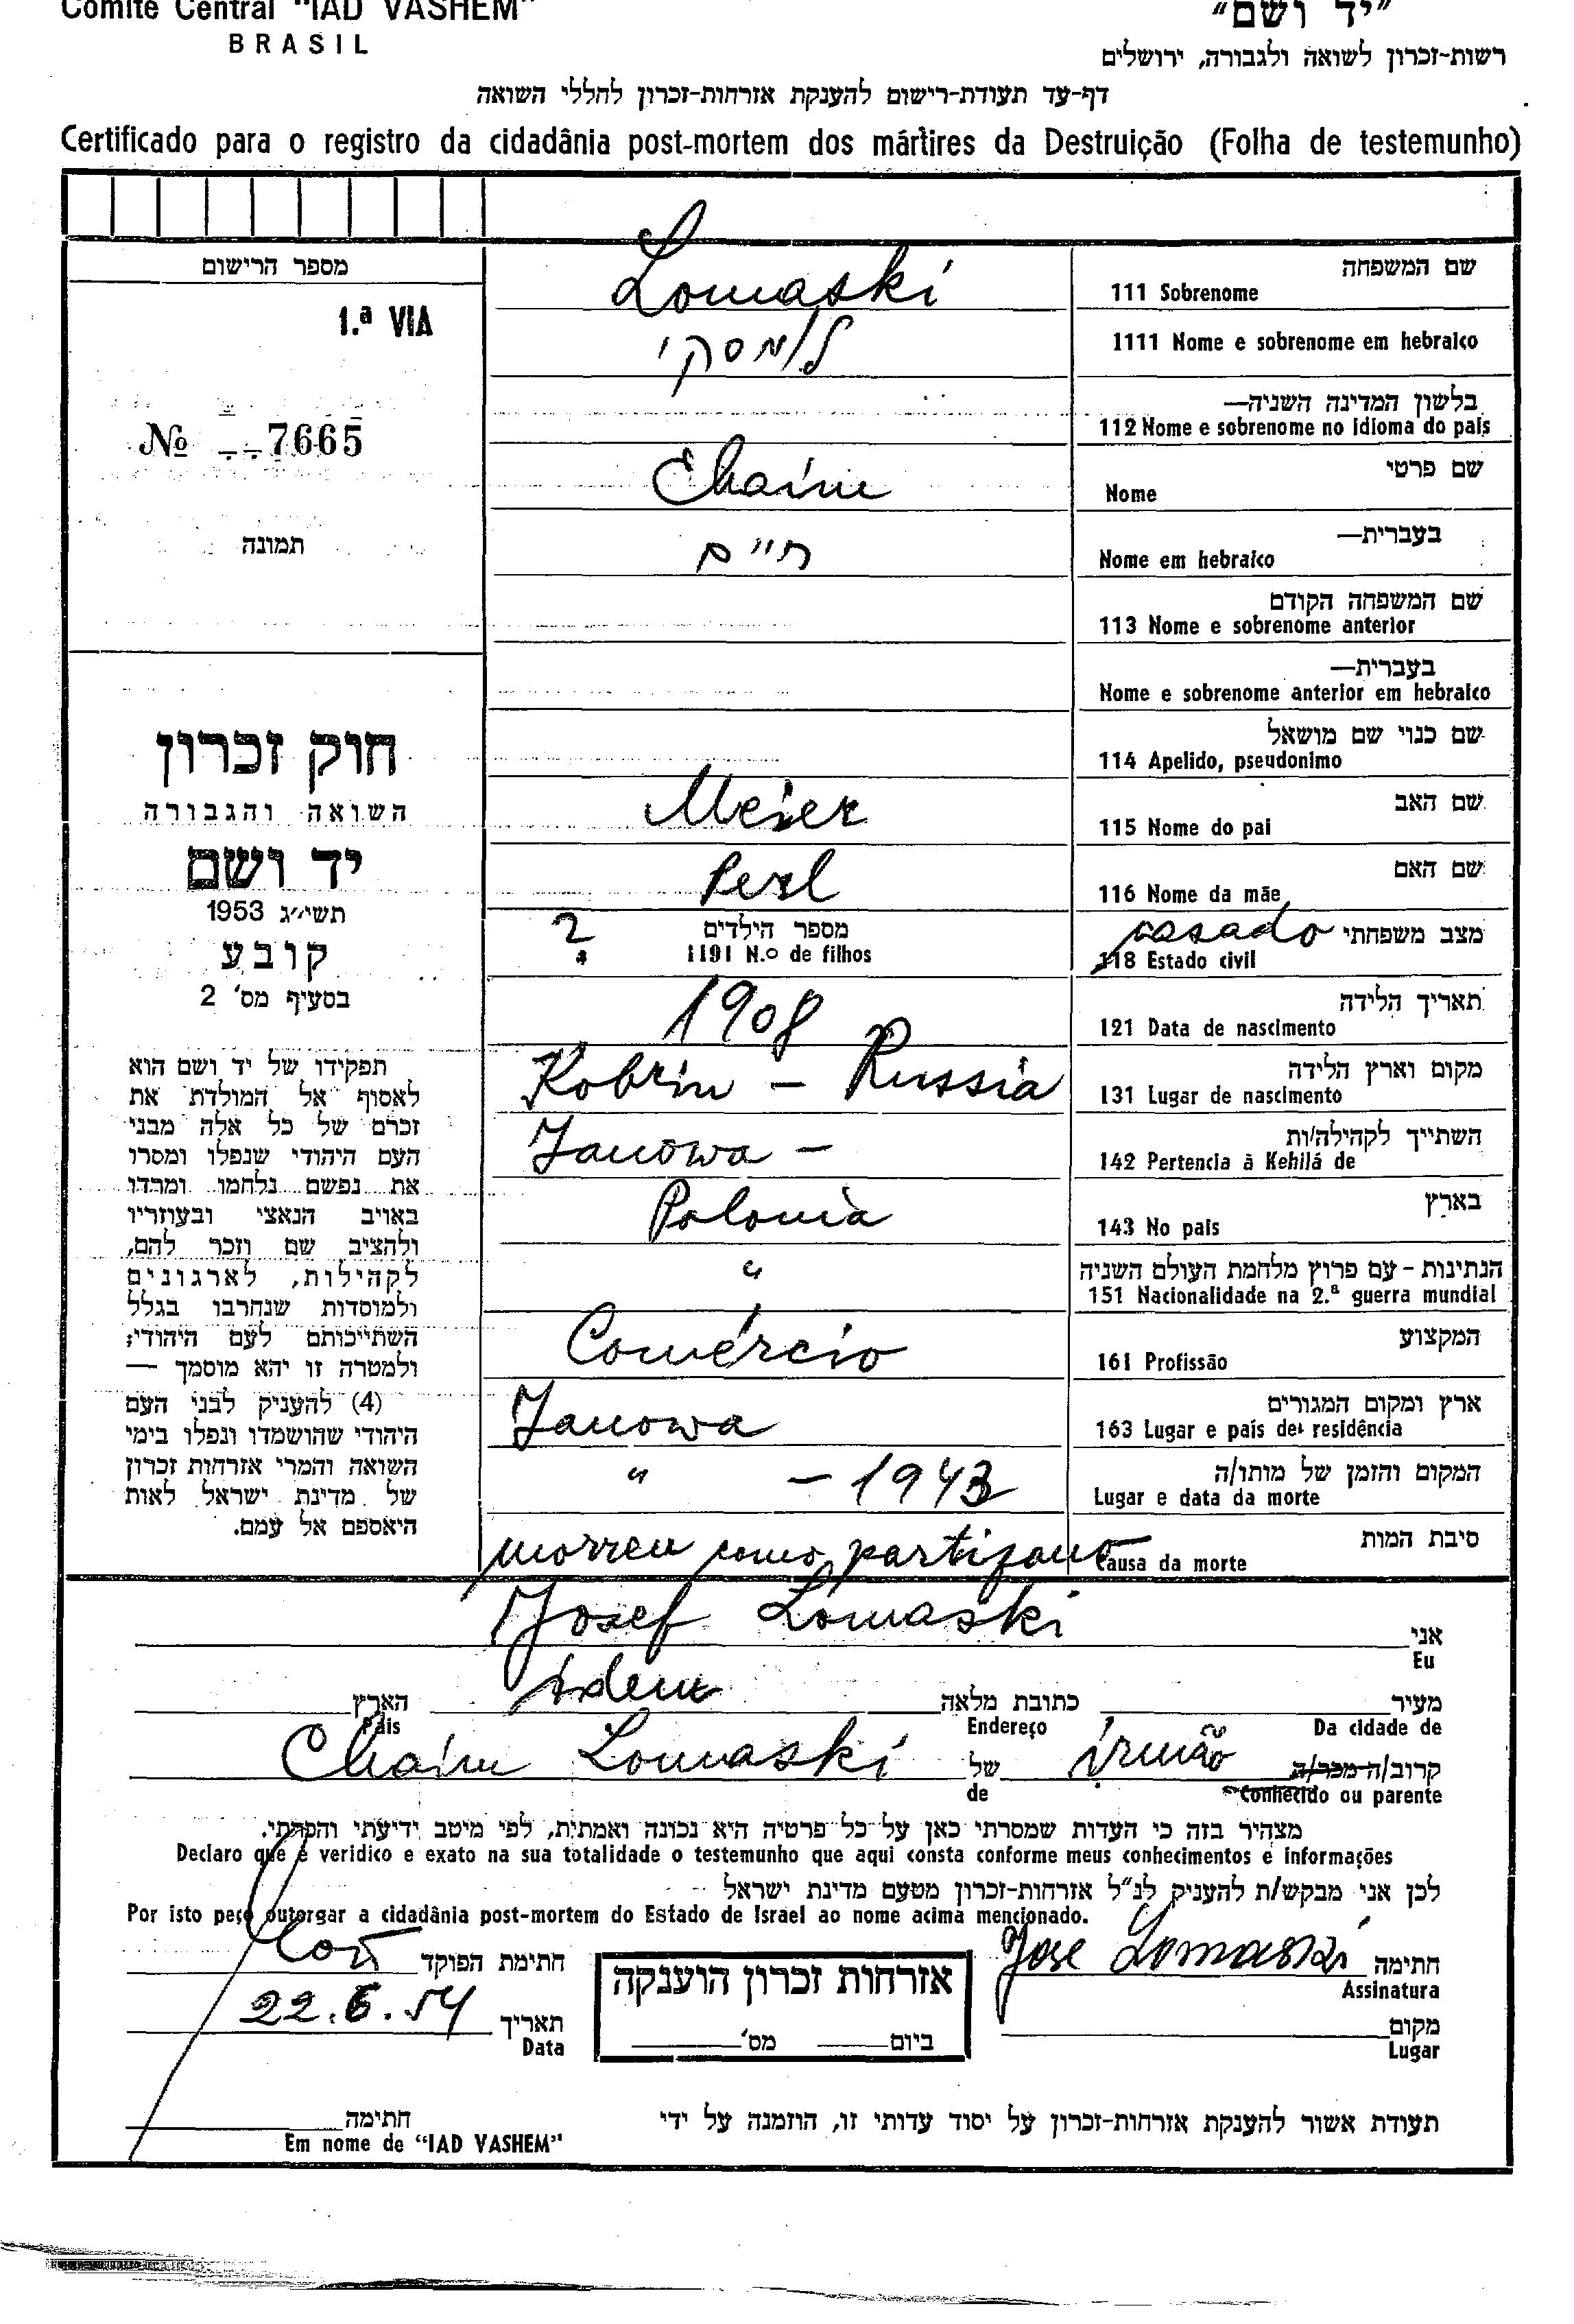 Comité Central "IAD VASHEM"
BRASIL
"יד ושם"
רשות-זכרון לשואה ולגבורה, ירושלים
דף-עד תעודת-רישום להענקת אזרחות-זכרון לחללי השואה
Certificado para o registro da cidadânia post-mortem dos mártires da Destruição (Folha de testemunho)
מספר הרישום
1.ª VIA
№ 7665
תמונה
חוק זכרון
השואה והגבורה
יד ושם
תשי״ג 1953
קובע
בסעיף מס' 2
תפקידו של יד ושם הוא
לאסוף אל המולדת את
זכרם של כל אלה מבני
העם היהודי שנפלו ומסרו
את נפשם נלחמו ומרדו
באויב הנאצי ובעוזריו
ולהציב שם וזכר להם,
לקהילות, לארגונים
ולמוסדות שנחרבו בגלל
השתייכותם לעם היהודי;
ולמטרה זו יהא מוסמך —
(4) להעניק לבני העם
היהודי שהושמדו ונפלו בימי
השואה והמרי אזרחות זכרון
של מדינת ישראל לאות
היאספם אל עמם.
שם המשפחה
111 Sobrenome Lomaski
1111 Nome e sobrenome em hebraico לומסקי
בלשון המדינה השניה—
112 Nome e sobrenome no idioma do pais
שם פרטי
Nome Chaim
בעברית—
Nome em hebraico חיים
שם המשפחה הקודם
113 Nome e sobrenome anterior
בעברית—
Nome e sobrenome anterior em hebraico
שם כנוי שם מושאל
114 Apelido, pseudonimo
שם האב
115 Nome do pai Meier
שם האם
116 Nome da mãe Perl
מצב משפחתי casado
118 Estado civil
מספר הילדים 2
1191 N.o de filhos
תאריך הלידה
121 Data de nascimento 1908
מקום וארץ הלידה
131 Lugar de nascimento Kobrin - Russia
השתייך לקהילה/ות
142 Pertencia à Kehilá de Janowa -
בארץ
143 No pais Polonia
הנתינות - עם פרוץ מלחמת העולם השניה
151 Nacionalidade na 2.ª guerra mundial "
המקצוע
161 Profissão Comércio
ארץ ומקום המגורים
163 Lugar e pais de residência Janowa
המקום והזמן של מותו/ה
Lugar e data da morte " - 1943
סיבת המות
Causa da morte morreu como partisano
אני Josef Lomaski
Eu
מעיר כתובת מלאה idem הארץ
Da cidade de Endereço Pais
קרוב/ה מכר/ה irmão של Chaim Lomaski
Conhecido ou parente de
מצהיר בזה כי העדות שמסרתי כאן על כל פרטיה היא נכונה ואמתית, לפי מיטב ידיעתי והכרתי.
Declaro que é veridico e exato na sua totalidade o testemunho que aqui consta conforme meus conhecimentos e informações
לכן אני מבקש/ת להעניק לנ"ל אזרחות-זכרון מטעם מדינת ישראל
Por isto peço outorgar a cidadânia post-mortem do Estado de Israel ao nome acima mencionado.
חתימה Jose Lomaski
Assinatura
חתימת הפוקד
אזרחות זכרון הוענקה
ביום מס'
מקום
Lugar
תאריך 22.6.54
Data
תעודת אשור להענקת אזרחות-זכרון על יסוד עדותי זו, הוזמנה על ידי
חתימה
Em nome de "IAD VASHEM"